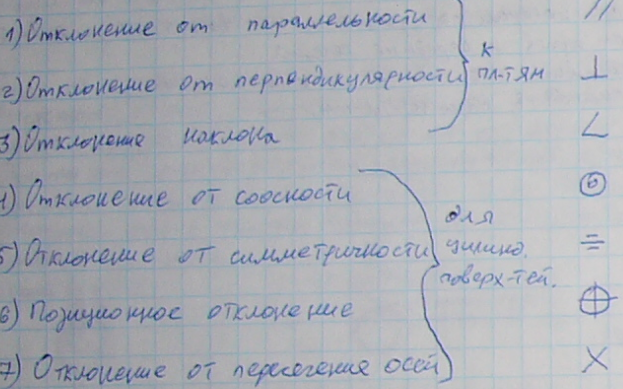 1) Отклонение от параллельности //
к
2) Отклонение от перпендикулярности пл-тям ⊥
3) Отклонение наклона ∠
4) Отклонение от соосности ◎
для
5) Отклонение от симметричности цилинд. ⌯
поверх-тей.
6) Позиционное отклонение ⌖
7) Отклонение от пересечения осей X